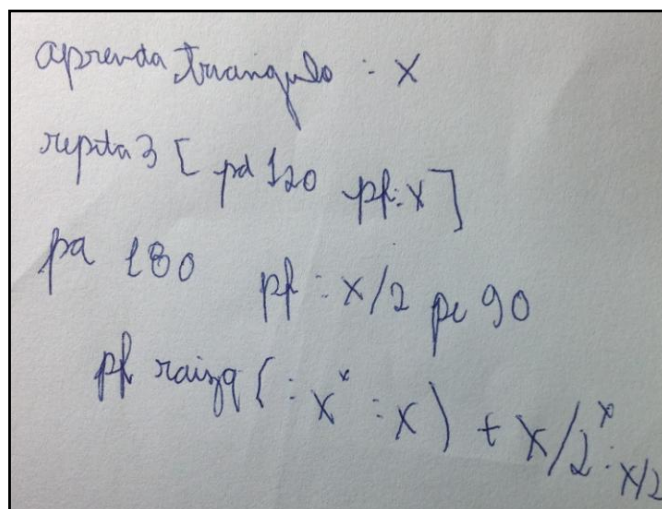 aprenda triangulo : x
repita 3 [ pd 120 pf :x ]
pa 180 pf : x/2 pe 90
pf raizq (:x* :x) + x/2* :x/2